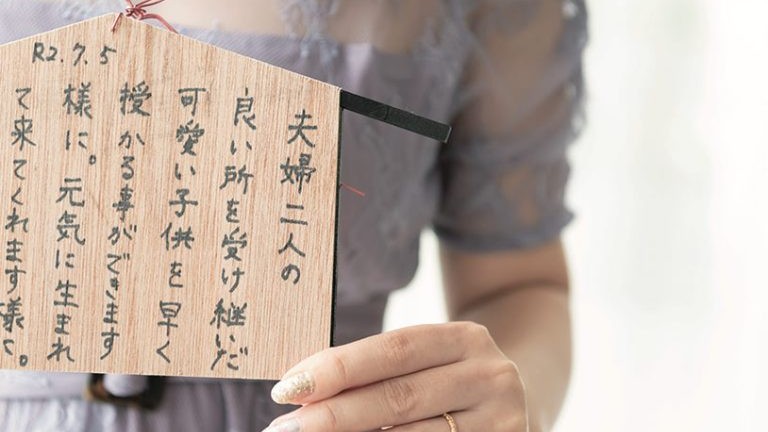 R2.7.5
夫婦二人の
良い所を受け継いだ
可愛い子供を早く
授かる事ができます
様に。元気に生まれ
て来てくれます様に。